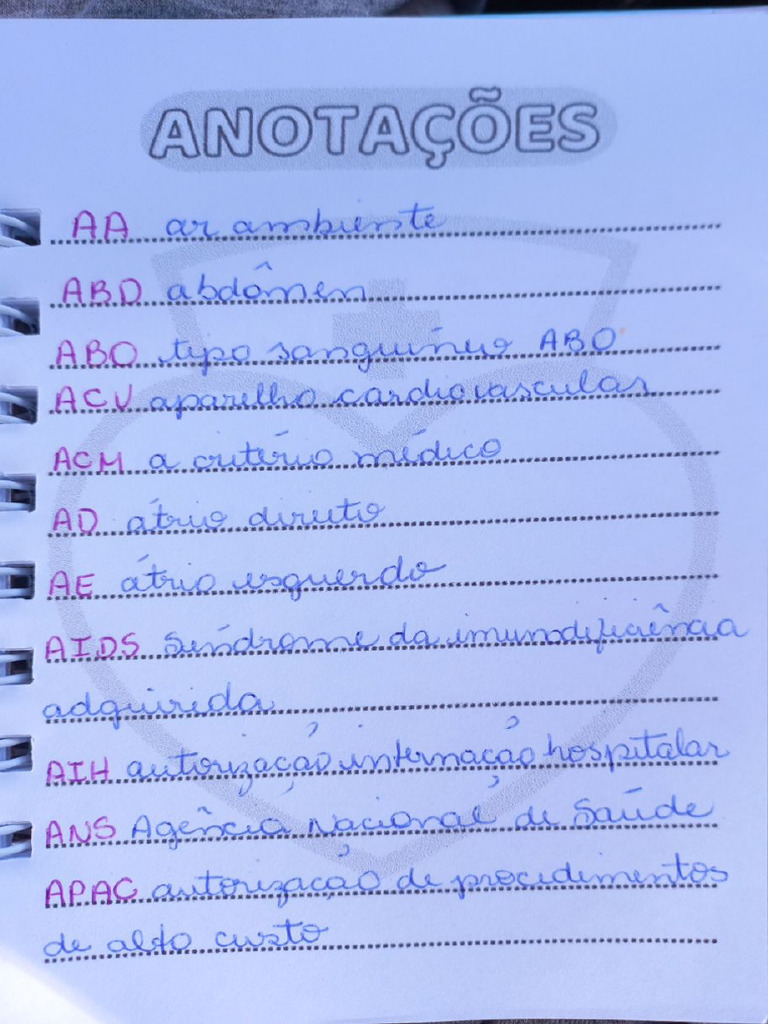 ANOTAÇÕES
AA ar ambiente
ABD abdômen
ABO tipo sanguíneo ABO
ACV aparelho cardiovascular
ACM a critério médico
AD átrio direito
AE átrio esquerdo
AIDS síndrome da imunodeficiência
adquirida
AIH autorização internação hospitalar
ANS Agência Nacional de Saúde
APAC autorização de procedimentos
de alto custo